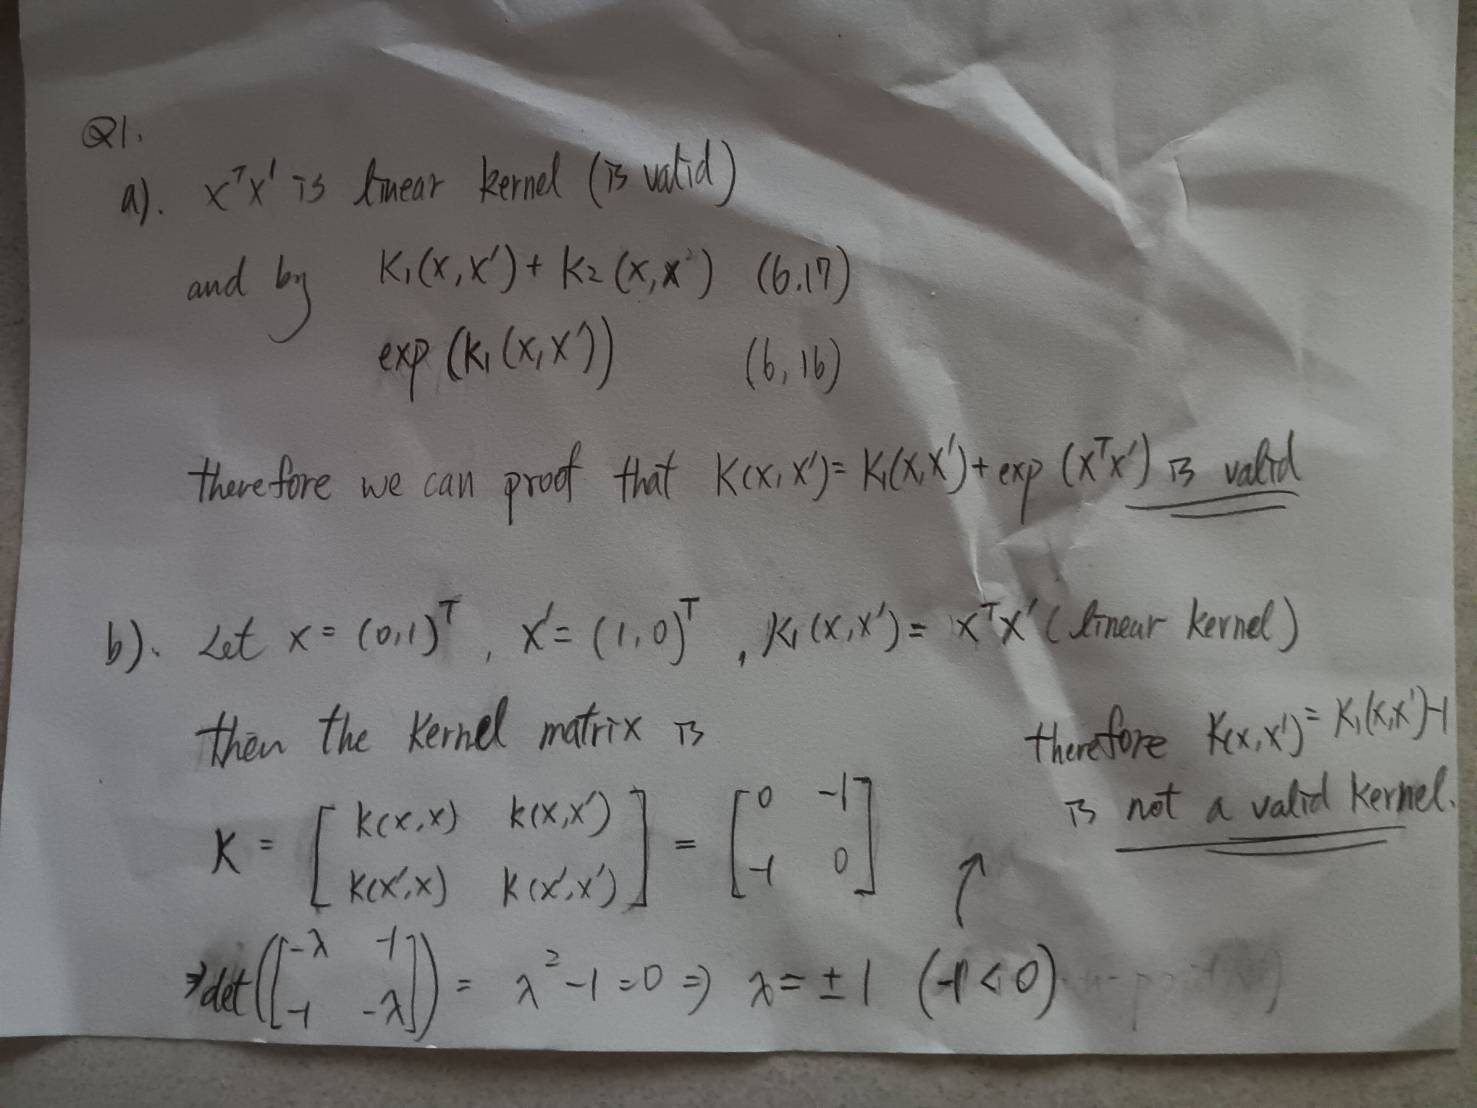 Q1.
a). x^T x' is linear kernel (is valid)
and by K₁(x,x') + K₂(x,x') (6.17)
exp(K₁(x,x')) (6,16)
therefore we can proof that K(x,x') = K₁(x,x') + exp(x^T x') is valid
b). Let x = (0,1)^T, x' = (1,0)^T, K₁(x,x') = x^T x' (linear kernel)
then the kernel matrix is
K = [ k(x,x) k(x,x') ; k(x',x) k(x',x') ] = [ 0 -1 ; -1 0 ]
⇒ det([ -λ -1 ; -1 -λ ]) = λ² - 1 = 0 ⇒ λ = ±1 (-1 < 0)
↑
therefore K(x,x') = K₁(x,x') - 1
is not a valid kernel.